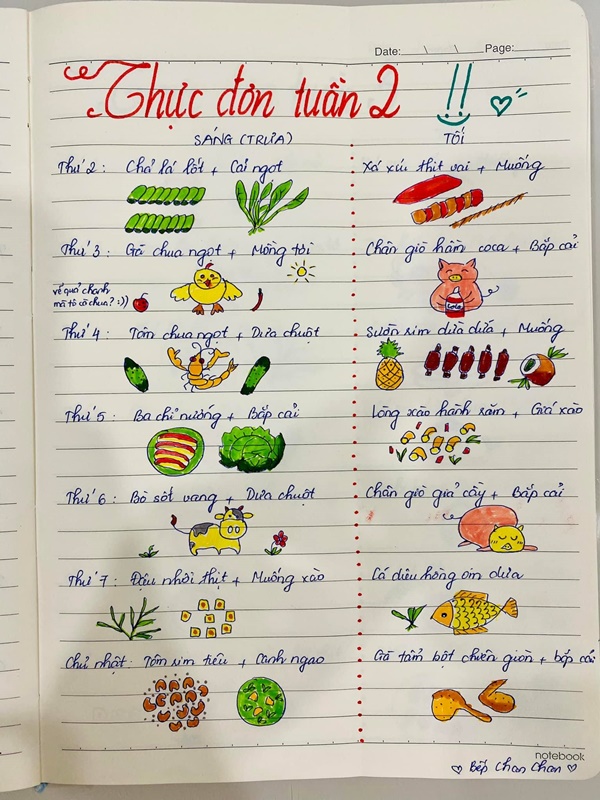 Date: \ \ Page:
Thực đơn tuần 2 !!
SÁNG (TRƯA) TỐI
Thứ 2: Chả lá lốt + Cải ngọt Xá xíu thịt vai + Muống
Thứ 3: Gà chua ngọt + Mồng tơi Chân giò hầm coca + Bắp cải
vẽ quả chanh
mà tô cà chua? :))
Cola
Thứ 4: Tôm chua ngọt + Dưa chuột Sườn sim dừa dứa + Muống
Thứ 5: Ba chỉ nướng + Bắp cải Lòng xào hành răm + Giá xào
Thứ 6: Bò sốt vang + Dưa chuột Chân giò giả cầy + Bắp cải
Thứ 7: Đậu nhồi thịt + Muống xào Cá diêu hồng om dưa
Chủ nhật: Tôm sim tiêu + Canh ngao Gà tẩm bột chiên giòn + bắp cải
notebook
Bếp Chan Chan